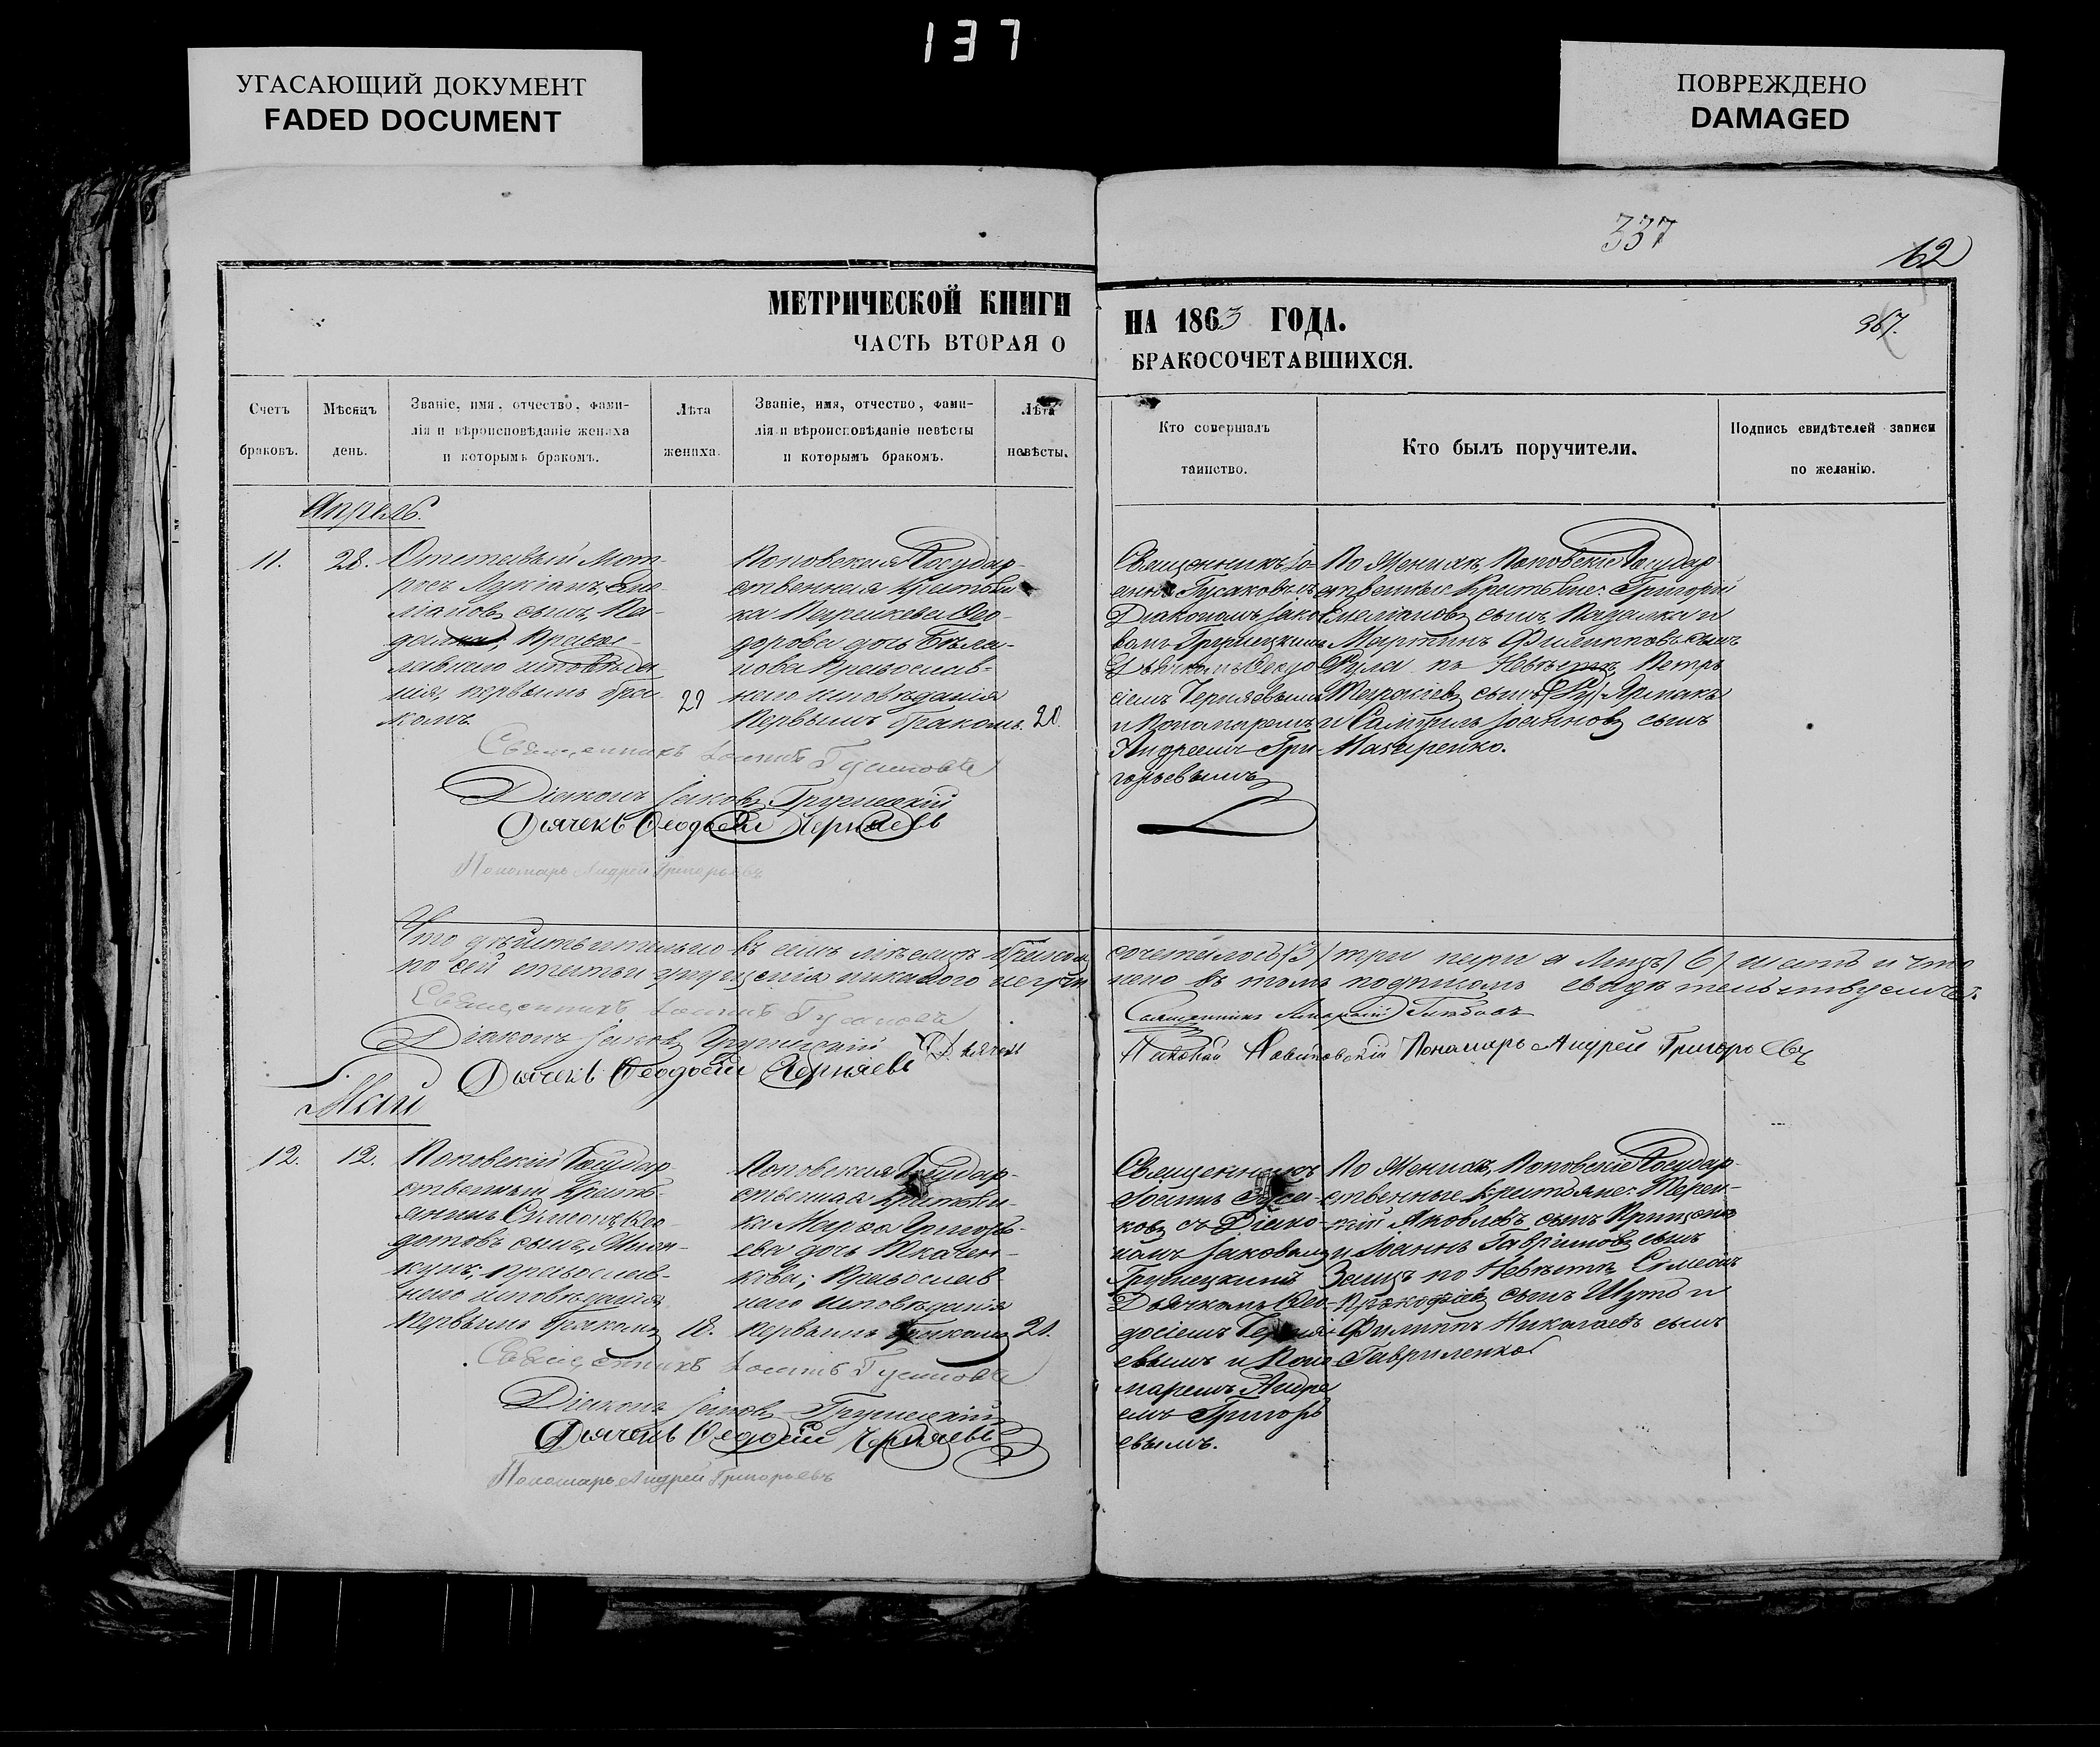 137
УГАСАЮЩИЙ ДОКУМЕНТ
FADED DOCUMENT
ПОВРЕЖДЕНО
DAMAGED
337
62
МЕТРИЧЕСКОЙ КНИГИ
НА 1863 ГОДА.
367.
ЧАСТЬ ВТОРАЯ О
БРАКОСОЧЕТАВШИХСЯ.
Счетъ
браковъ.
Мѣсяцъ
день.
Званіе, имя, отчество, фами-
лія и вѣроисповѣданіе жениха
и которымъ бракомъ.
Лѣта
жениха.
Званіе, имя, отчество, фами-
лія и вѣроисповѣданіе невѣсты
и которымъ бракомъ.
Лѣта
невѣсты.
Кто совершалъ
таинство.
Кто былъ поручители.
Подпись свидѣтелей записи
по желанію.
Апрель.
11.
28.
Отставный мат-
росъ Лукіанъ Еме-
ліановъ сынъ, Па-
далка, Правос-
лавнаго исповѣда
нія, первымъ бра-
комъ
29
Поповская Государ-
ственная Крестьян
ка Параскева Ѳео-
дорова дочь
нова Православ-
наго исповѣданія
Первымъ бракомъ.
20
Священникъ Іо-
аннъ Гусаковъ съ
Діакономъ Іако
вомъ Грушецкимъ
Дьячкомъ Ѳеодо
сіемъ Черняевымъ
и Пономаремъ
Андреемъ Гри-
горьевымъ
По Женихѣ, Поповскіе Государ
ственные Крестьяне: Григорій
Емеліановъ сынъ Падалка и
Мартинъ Филипповъ сынъ
по Невѣстѣ, Петръ
сынъ
и Самуилъ Іоанновъ сынъ
Назаренко.
Священникъ Іоаннъ Гусаковъ
Діаконъ Іаковъ Грушецкій
Дьячекъ Ѳеодосій Черняевъ
Пономарь Андрей Григорьевъ
Что дѣйствительно въ семъ мѣсяцѣ бракомъ
сочеталось (3) три пары а лицъ (6) шесть и что
по сей статьи упущенія никакого не учи
нено въ томъ подписомъ свидѣтельствуемъ.
Священникъ Іоаннъ Гусаковъ
Священникъ
Діаконъ Іаковъ Грушецкій
Дьячекъ
Николай Новиковскій Пономарь Андрей Григорьевъ
Дьячекъ Ѳеодосій Черняевъ
Май
12.
12.
Поповскій Государ-
ственный Кресть-
янинъ Симеонъ Ѳео-
дотовъ сынъ,
Православ-
наго исповѣданія
Первымъ бракомъ
18.
Поповская Государ-
ственная Крестьян-
ка Марѳа Григорь-
ева дочь Ткачен-
кова; Православ
наго исповѣданія
первымъ бракомъ
21.
Священникъ
Іоаннъ Гуса-
ковъ съ Діако-
номъ Іаковомъ
Грушецкимъ
Дьячкомъ Ѳео-
досіемъ Черня-
евымъ и Поно-
маремъ Андре
емъ Григорь
евымъ.
По Женихѣ, Поповскіе Государ-
ственные крестьяне: Терен-
тій Яковлевъ сынъ
и Іоаннъ Гавріиловъ сынъ
Заяцъ по Невѣстѣ Симеонъ
Прокофіевъ сынъ Шуть и
Филиппъ Николаевъ сынъ
Гавриленко
Священникъ Іоаннъ Гусаковъ
Діаконъ Іаковъ Грушецкій
Дьячекъ Ѳеодосій Черняевъ
Пономарь Андрей Григорьевъ